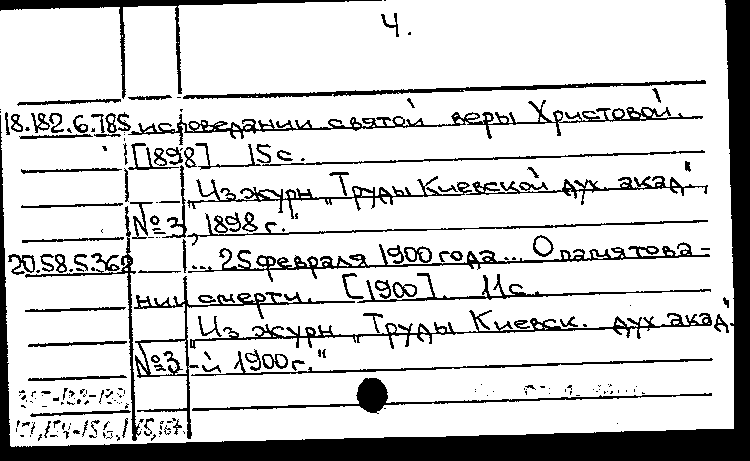 4.
18.182.6.785 исповедании святой веры Христовой.
[1898]. 15с.
"Из журн "Труды Киевской дух акад",
№3, 1898 г."
20.58.5.362 ... 25 февраля 1900 года... О памятова-
нии смерти. [1900]. 11с.
"Из журн "Труды Киевск. дух акад"
№3-й 1900г."